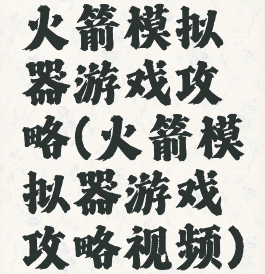 火箭模拟
器游戏攻
略(火箭模
拟器游戏
攻略视频)